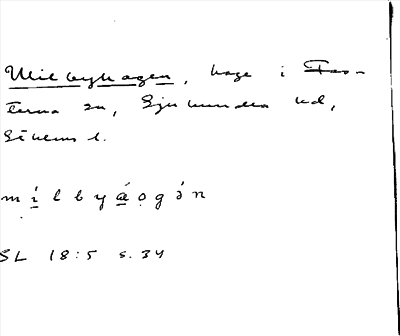 Milbyhagen, hage i Fas-
terna sn, Sjuhundra hd,
Sthlms l.
m í̱ l b y á̱ o̤ g ə̀ n
SL 18:5 s. 34